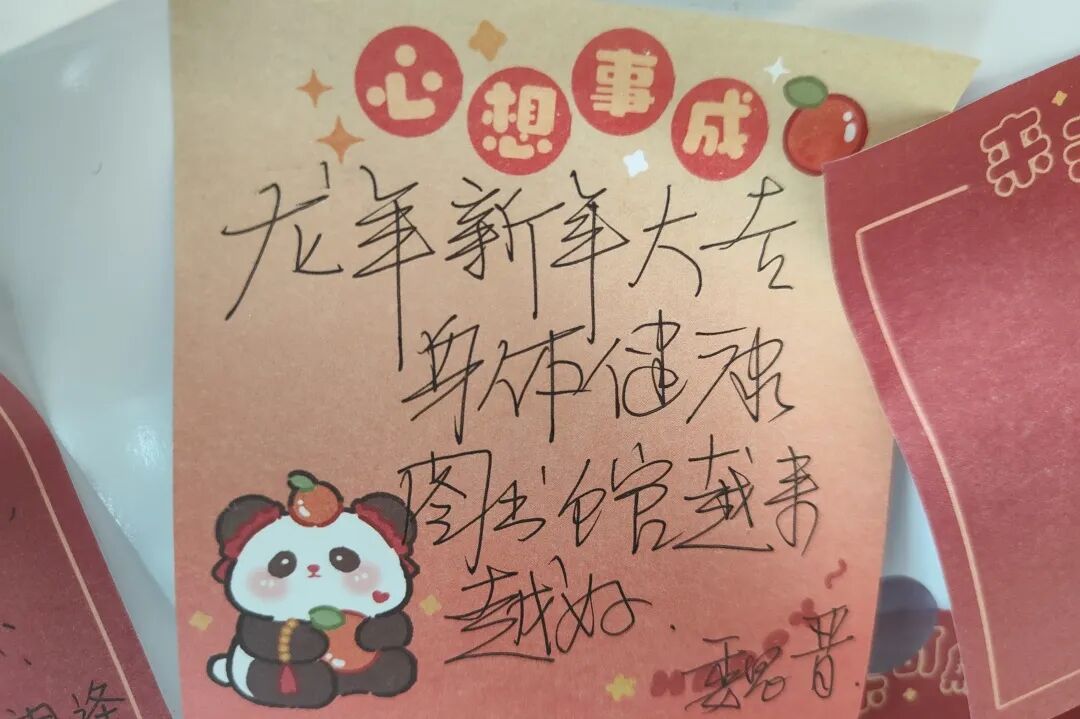 心想事成
龙年新年大吉
身体健康
图书馆越来
越好.
来